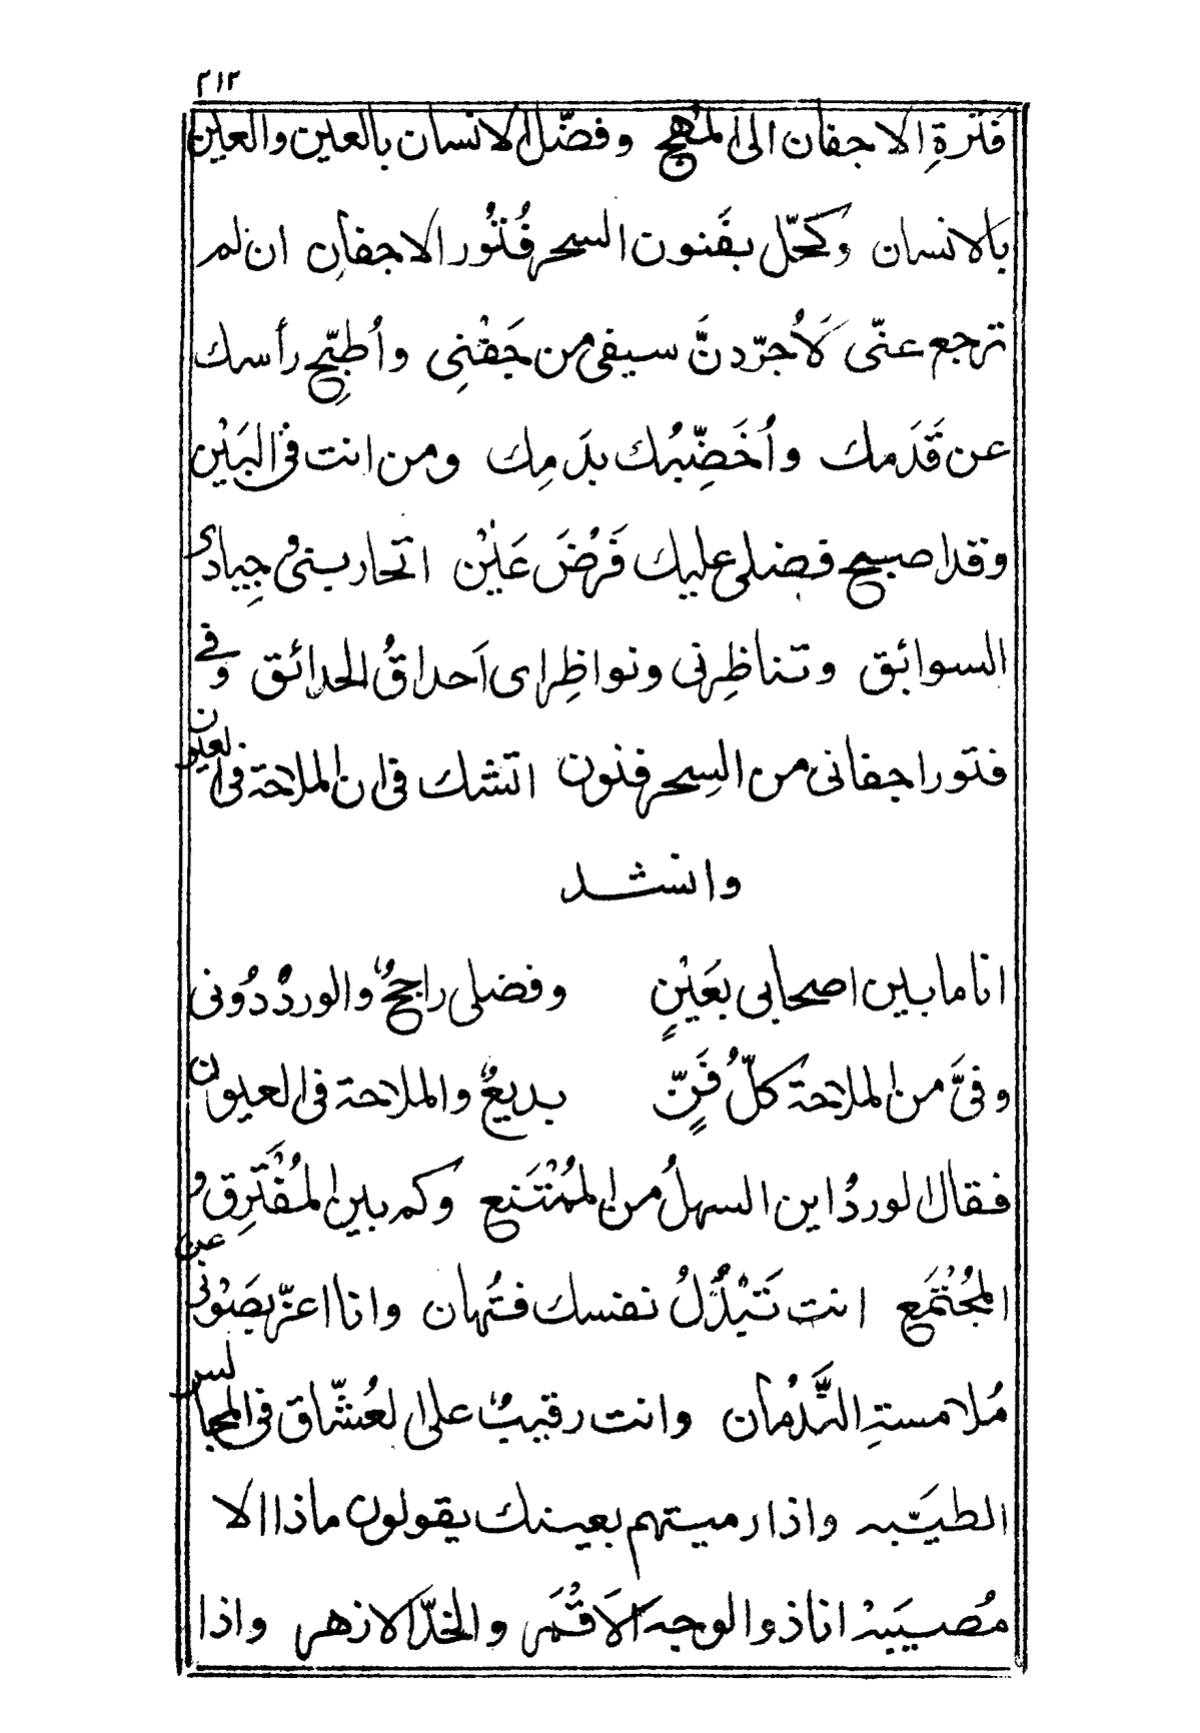 ٢١٢
فَتْرةِ الاجفان الى المهج وفضّل الانسان بالعين والعين
بالانسان وكحّل بفَنون السحر فُتُور الاجفان ان لم
ترجع عنّى لَأُجرّدنَّ سيفى من جَفْنِى وأُطيّح رأسك
عن قَدَمك وأُخَضِّبُك بدَمِك ومن انت فى البَيْن
وقد اصبح فضلى عليك فَرْضَ عَيْن اتحاربنى وجِيادى
السوابق وتناظِرنى ونواظِراى اَحداقُ الحدائق وفى
فتور اجفانى من السِحر فنون اتشك فى ان الملاحة فى العيون
وانشد
انا ما بين اصحابى بعَيْنٍ وفضلى راجحٌ والوردُ دُونى
وفىَّ من الملاحة كلُّ فَنٍّ بديعٌ والملاحة فى العيون
فقال الوردُ اين السهلُ من المُمْتَنع وكم بين المُفْتَرِق و
المُجْتَمَع انت تَبْذُلُ نفسك فتُهان وانا اعزّ بصَوْنى عن
مُلامسةِ النَّدْمان وانت رقيبٌ على العُشّاق فى المجالس
الطيّبه واذا رميتهم بعينك يقولون ماذا الا
مُصيبَه انا ذو الوجه الاَقْمَر والخدّ الازهر واذا